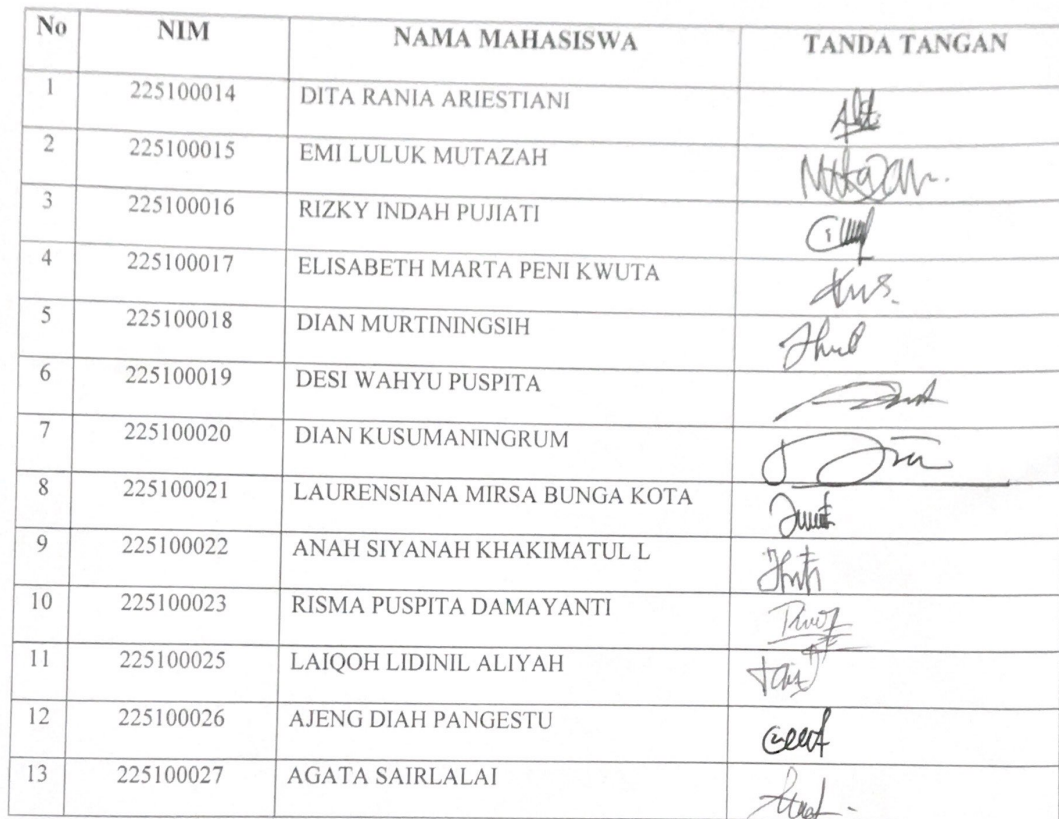 No NIM NAMA MAHASISWA TANDA TANGAN
1 225100014 DITA RANIA ARIESTIANI
2 225100015 EMI LULUK MUTAZAH
3 225100016 RIZKY INDAH PUJIATI
4 225100017 ELISABETH MARTA PENI KWUTA
5 225100018 DIAN MURTININGSIH
6 225100019 DESI WAHYU PUSPITA
7 225100020 DIAN KUSUMANINGRUM
8 225100021 LAURENSIANA MIRSA BUNGA KOTA
9 225100022 ANAH SIYANAH KHAKIMATUL L
10 225100023 RISMA PUSPITA DAMAYANTI
11 225100025 LAIQOH LIDINIL ALIYAH
12 225100026 AJENG DIAH PANGESTU
13 225100027 AGATA SAIRLALAI